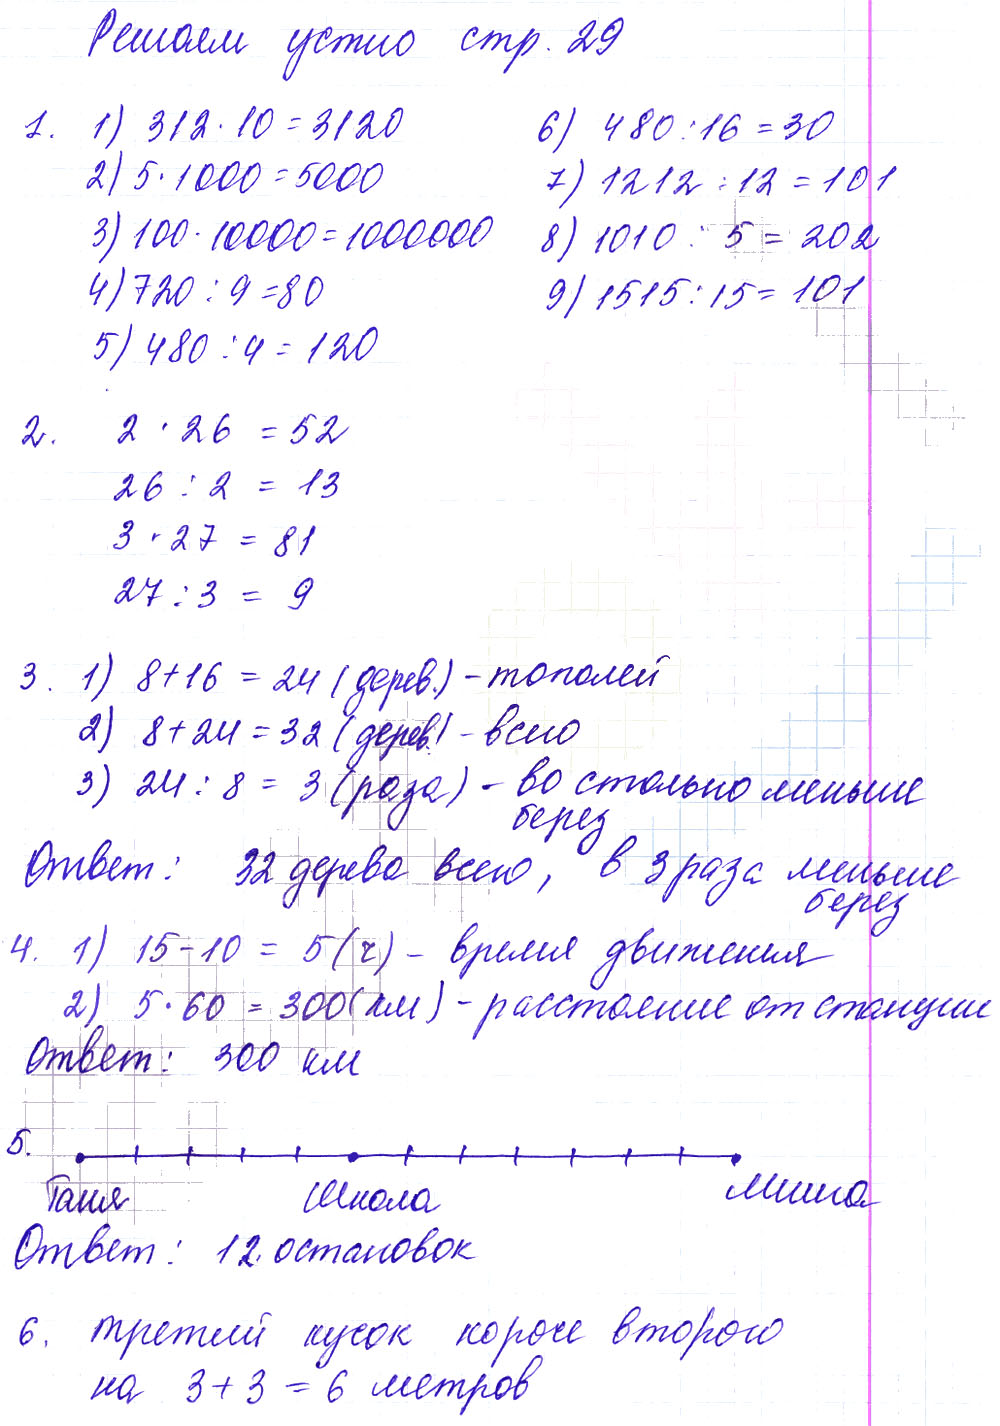 Решаем устно стр. 29
1. 1) 312·10=3120
2) 5·1000=5000
3) 100·10000=1000000
4) 720:9=80
5) 480:4=120
6) 480:16=30
7) 1212:12=101
8) 1010:5=202
9) 1515:15=101
2. 2·26=52
26:2=13
3·27=81
27:3=9
3. 1) 8+16=24 (дерев.) - тополей
2) 8+24=32 (дерев) - всего
3) 24:8=3 (раза) - во столько меньше
берез
Ответ: 32 дерева всего, в 3 раза меньше
берез
4. 1) 15-10=5 (ч) - время движения
2) 5·60=300 (км) - расстояние от станции
Ответ: 300 км
5.
Таня Школа Миша
Ответ: 12 остановок
6. третий кусок короче второго
на 3+3=6 метров